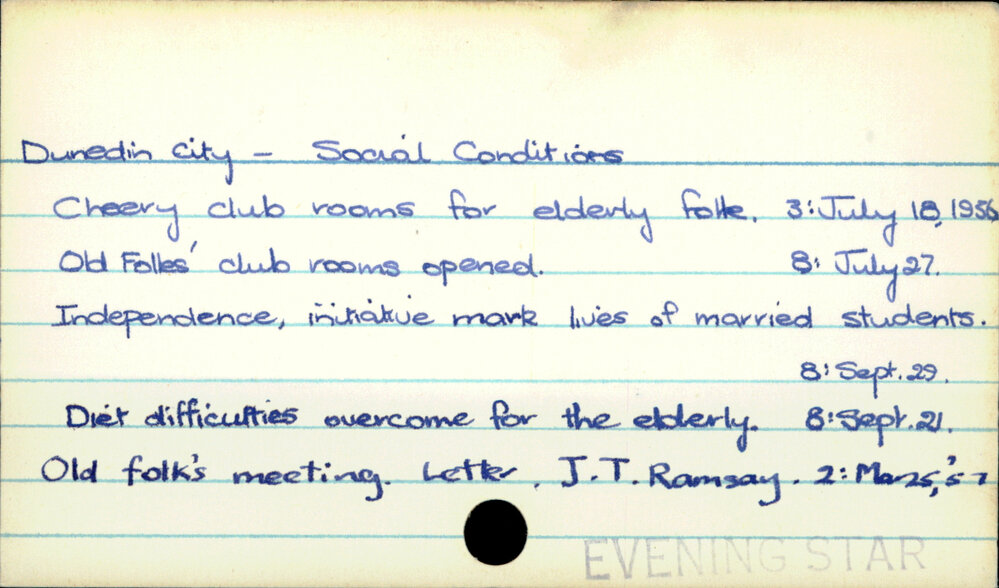 Dunedin City - Social Conditions
Cheery club rooms for elderly folk. 3: July 18, 1956
Old Folks' club rooms opened. 8: July 27.
Independence, initiative mark lives of married students.
8: Sept. 29.
Diet difficulties overcome for the elderly. 8: Sept. 21.
Old folk's meeting. Letter. J.T. Ramsay. 2: Mar 25, '57
EVENING STAR